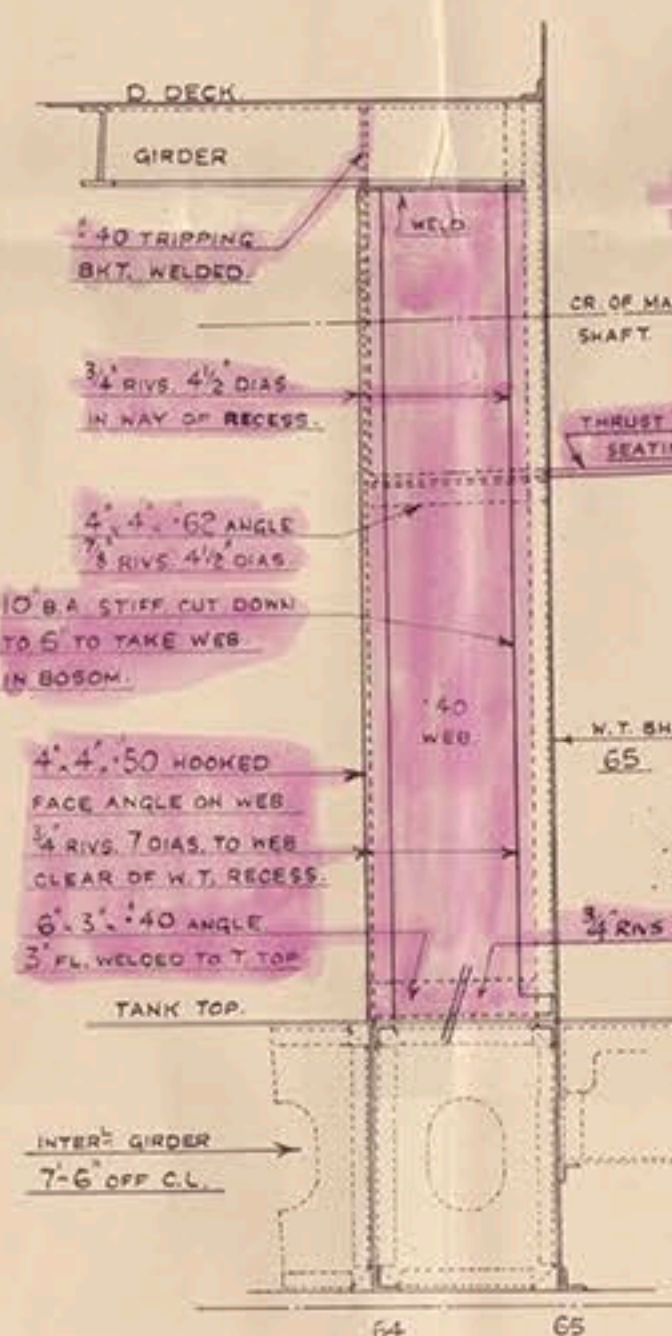 D. DECK.
GIRDER
·40 TRIPPING
BKT. WELDED.
WELD
CR. OF
SHAFT.
3/4" RIVS. 4 1/2" DIAS.
IN WAY OF RECESS.
THRUST
4" × 4" × ·62 ANGLE
7/8" RIVS. 4 1/2" DIAS.
10" B.A. STIFF. CUT DOWN
TO 6" TO TAKE WEB
IN BOSOM.
·40
WEB
W.T.
65
4" × 4" × ·50 HOOKED
FACE ANGLE ON WEB
3/4" RIVS. 7 DIAS. TO WEB
CLEAR OF W.T. RECESS.
6" × 3" × ·40 ANGLE
3" FL. WELDED TO T. TOP
3/4" RIVS
TANK TOP.
INTERL GIRDER
7'-6" OFF C.L.
64 65